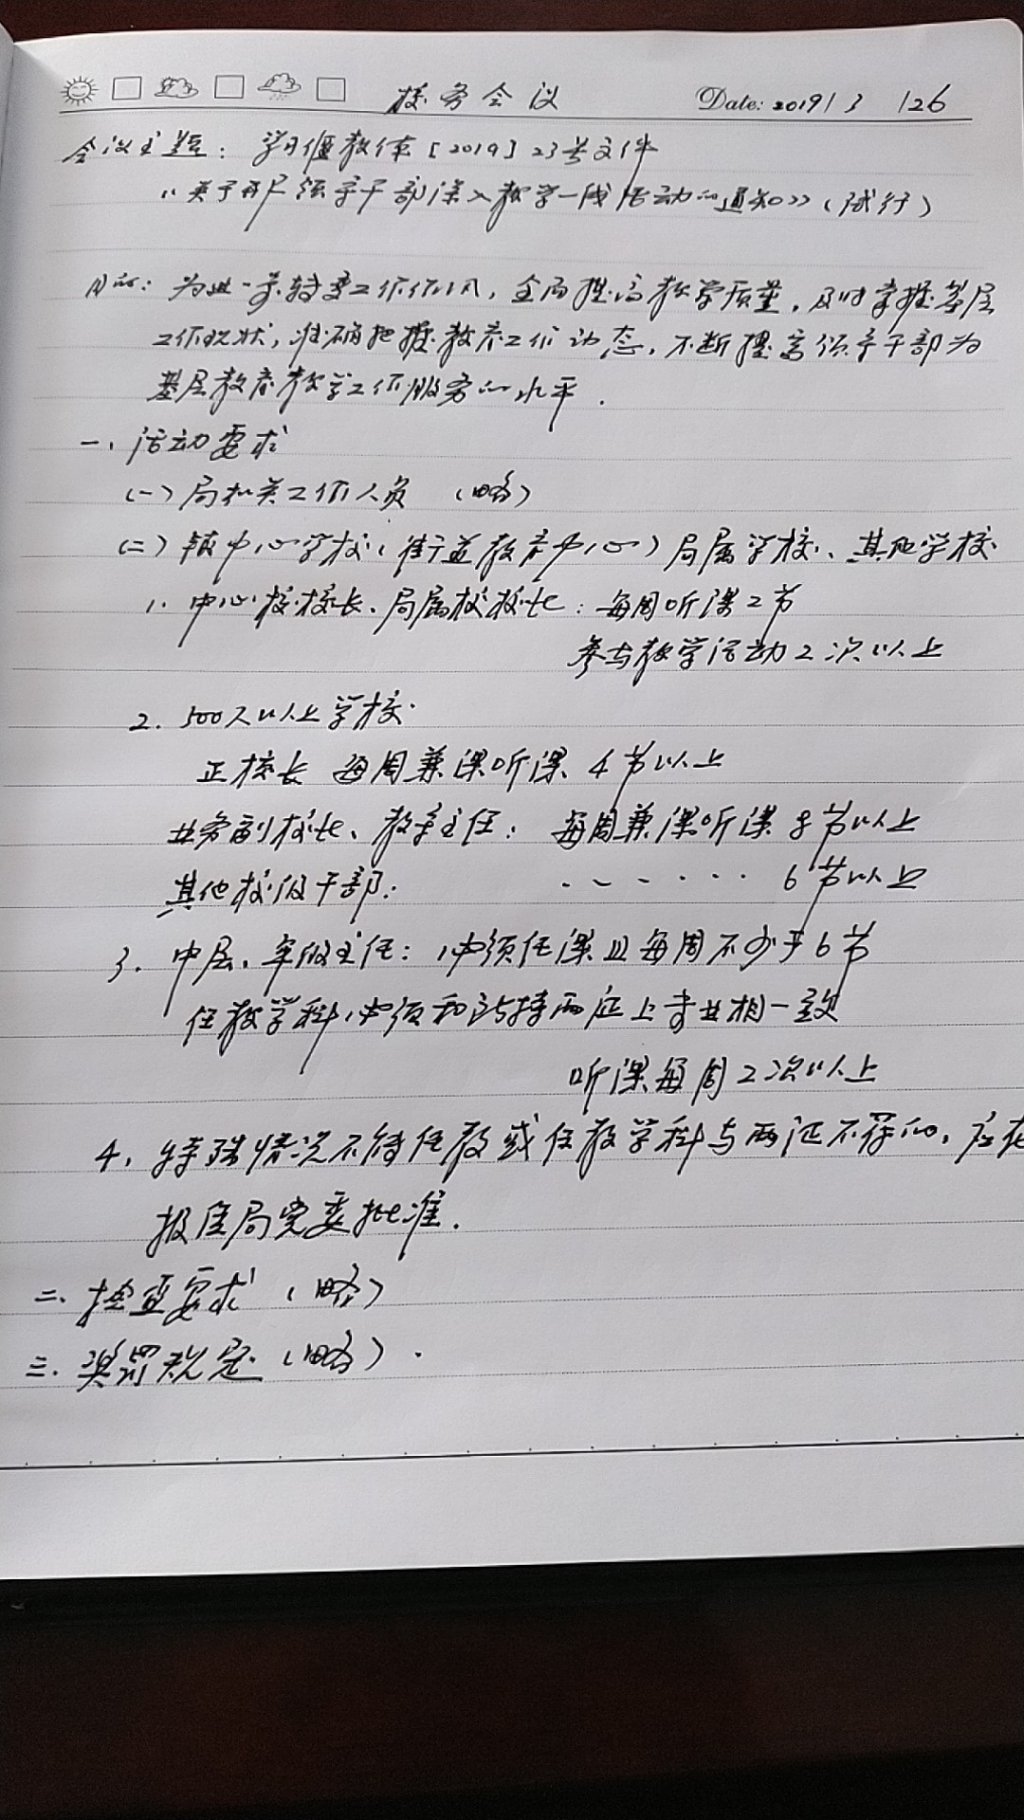 校务会议 Date: 2019 / 3 / 26
会议主题：学习偃教体［2019］23号文件
《关于开展领导干部深入教学一线活动的通知》（试行）
目的：为进一步转变工作作风，全面提高教学质量，及时掌握基层
工作现状，准确把握教育工作动态，不断提高领导干部为
基层教育教学工作服务的水平．
一、活动要求
（一）局机关工作人员 （略）
（二）镇中心学校（街道教育中心）局属学校、其他学校
1. 中心校校长、局属校校长：每周听课2节
参与教学活动2次以上
2. 500人以上学校
正校长 每周兼课听课 4节以上
业务副校长、教导主任： 每周兼课听课 8节以上
其他校级干部： ······ 6节以上
3. 中层、年级主任：必须任课且每周不少于6节
任教学科必须和所持两证上专业相一致
听课每周2次以上
4. 特殊情况不能任教或任教学科与两证不符的，应在
报经局党委批准．
二、检查要求（略）
三、奖罚规定（略）．